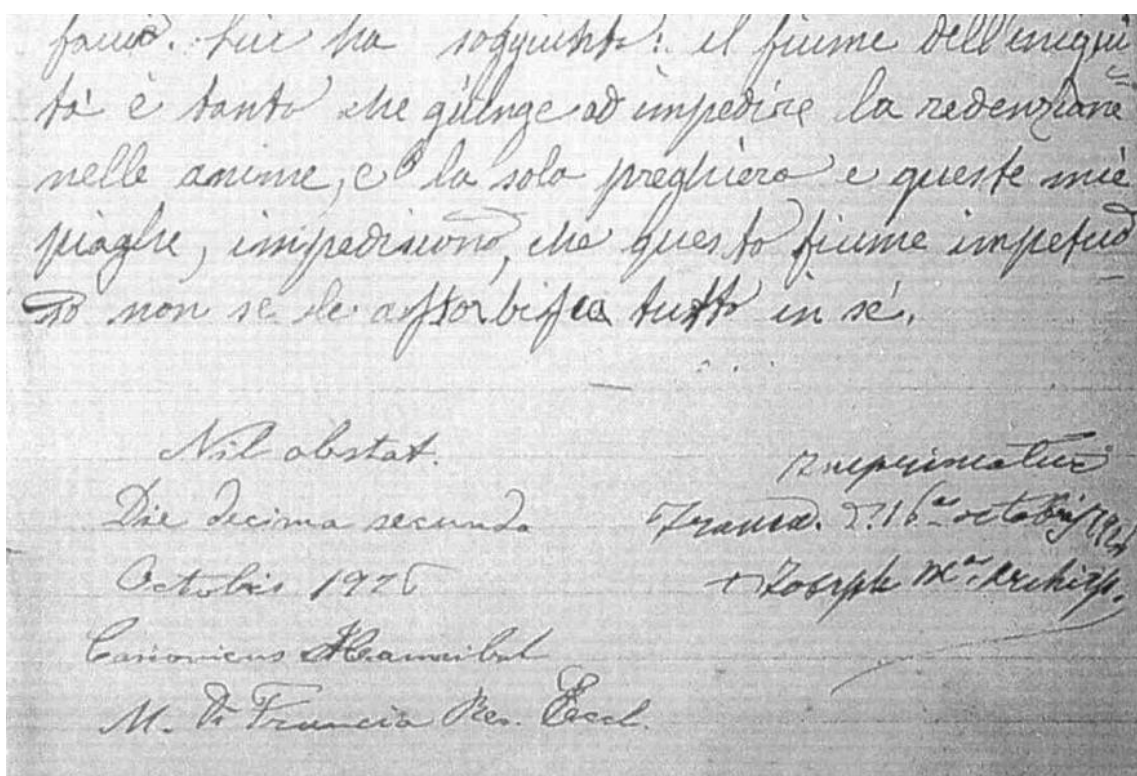 ha soggiunto: il fiume dell'iniqui
tà è tanto che giunge ad impedire la redenzione
nelle anime, e la sola preghiera e queste mie
piaghe, impediscono, che questo fiume impetuo
so non se le assorbisca tutto in sé.
Nil obstat.
Die decima secunda
Octobris 1926
Canonicus Hannibal
M. Di Francia Rev. Eccl.
Imprimatur
d. 16a octobris 1926
+ Joseph Ma. Archiep.